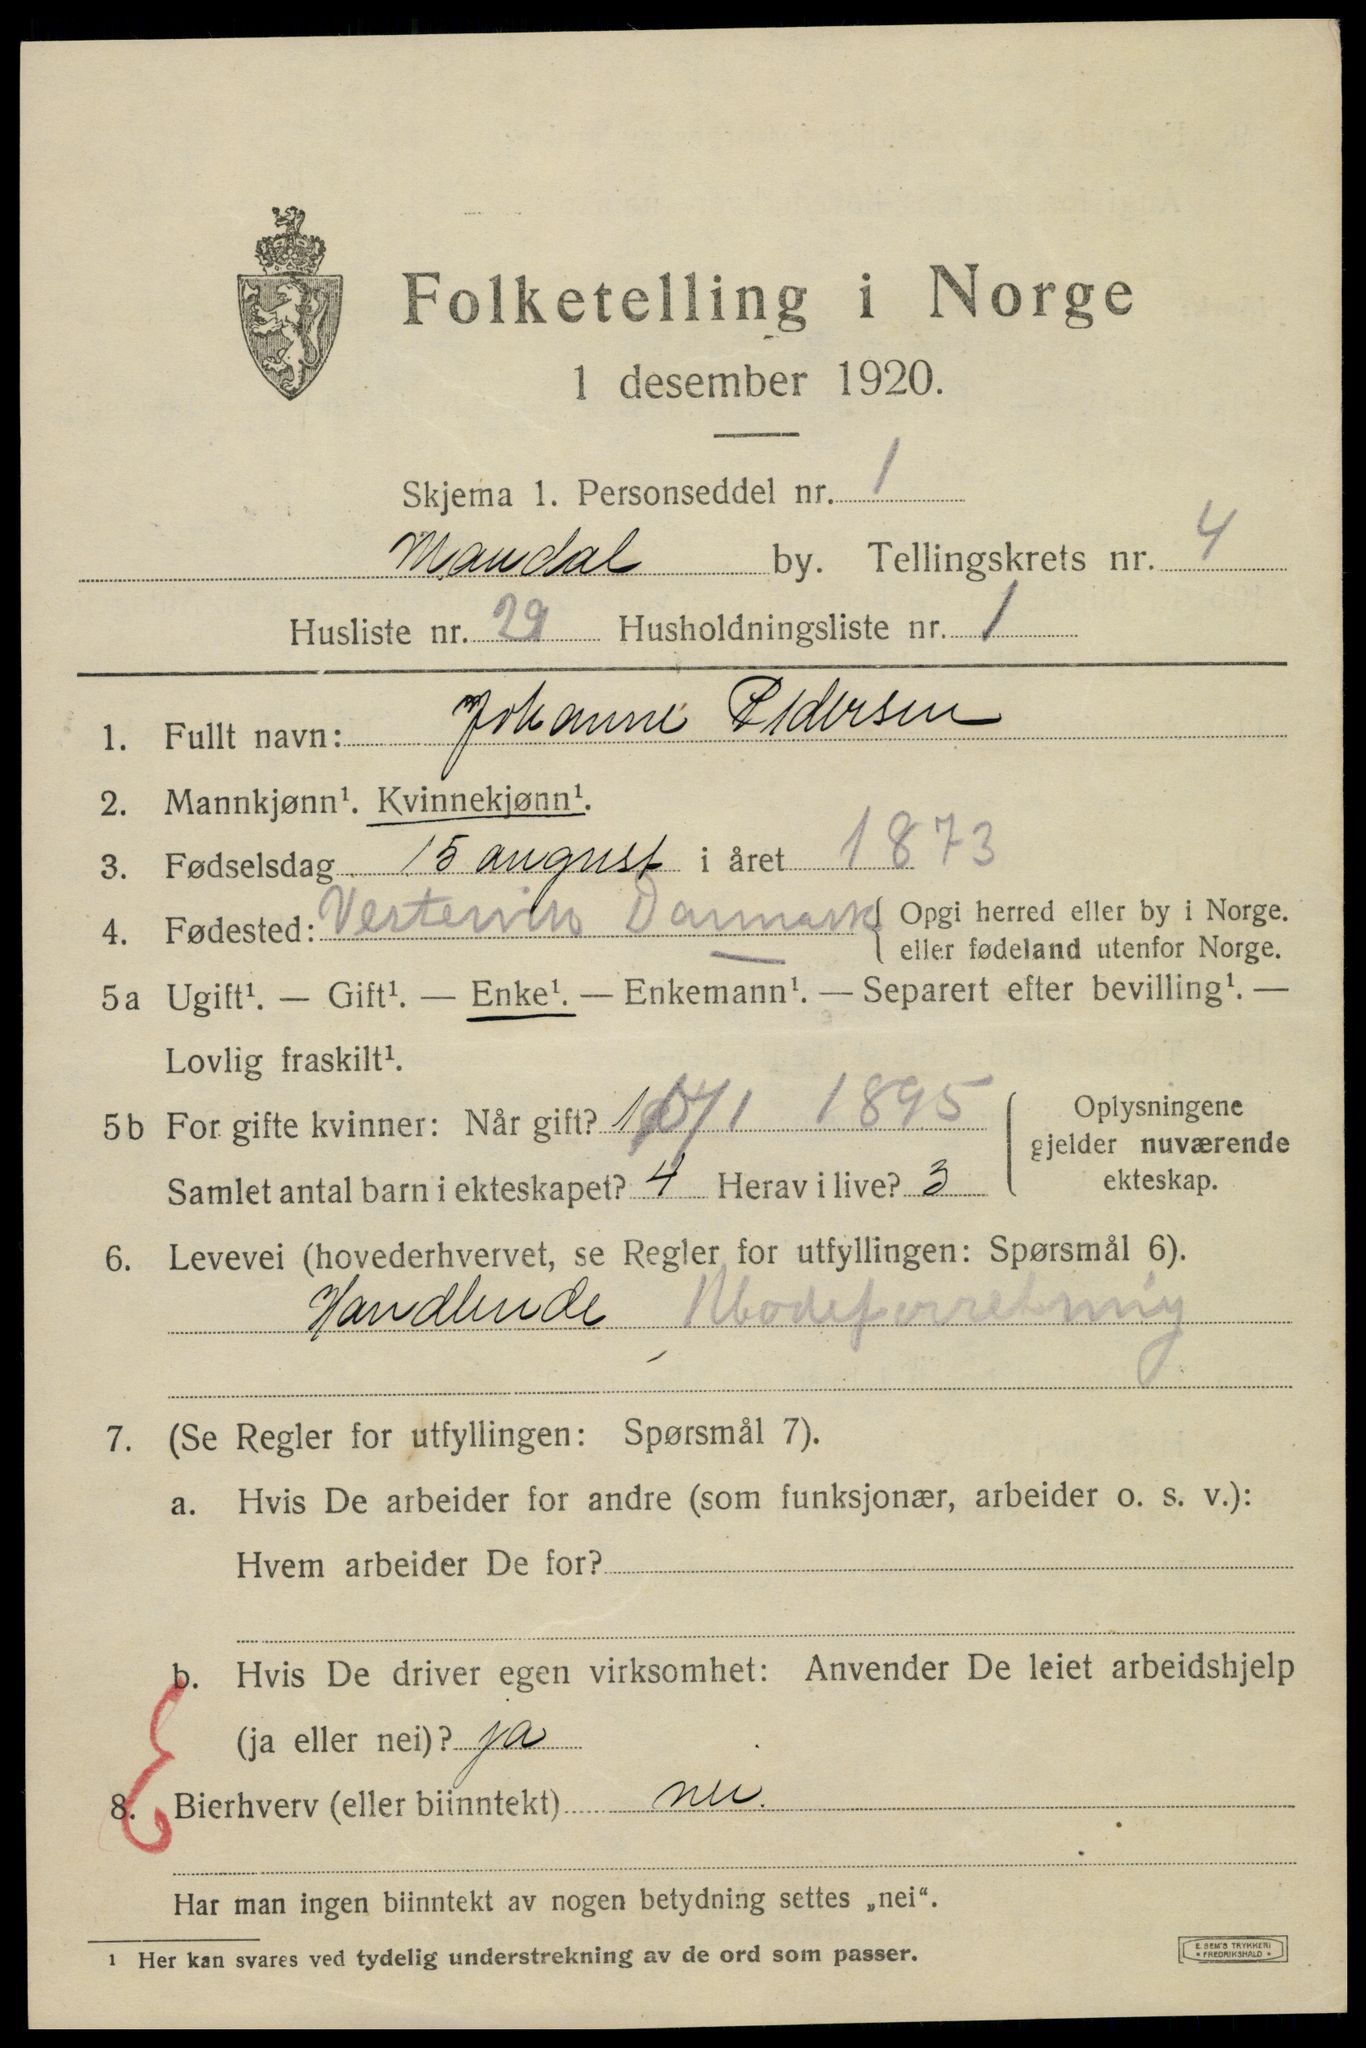 Folketelling i Norge
1 desember 1920.
Skjema 1. Personseddel nr. 1
Mandal by. Tellingskrets nr. 4
Husliste nr. 29 Husholdningsliste nr. 1
1. Fullt navn: Johanne Pedersen
2. Mannkjønn¹. Kvinnekjønn¹.
3. Fødselsdag 15 august i året 1873
4. Fødested: Danmark { Opgi herred eller by i Norge.
eller fødeland utenfor Norge.
5a Ugift¹. — Gift¹. — Enke¹. — Enkemann¹. — Separert efter bevilling¹. —
Lovlig fraskilt¹.
5b For gifte kvinner: Når gift? 1895
Samlet antal barn i ekteskapet? 4 Herav i live? 3
Oplysningene
gjelder nuværende
ekteskap.
6. Levevei (hovederhvervet, se Regler for utfyllingen: Spørsmål 6).
Handlende Modeforretning
7. (Se Regler for utfyllingen: Spørsmål 7).
a. Hvis De arbeider for andre (som funksjonær, arbeider o. s. v.):
Hvem arbeider De for?
b. Hvis De driver egen virksomhet: Anvender De leiet arbeidshjelp
(ja eller nei)? ja
8. Bierhverv (eller biinntekt) nei.
Har man ingen biinntekt av nogen betydning settes „nei“.
¹ Her kan svares ved tydelig understrekning av de ord som passer.
E. SEM'S TRYKKERI
* FREDRIKSHALD *